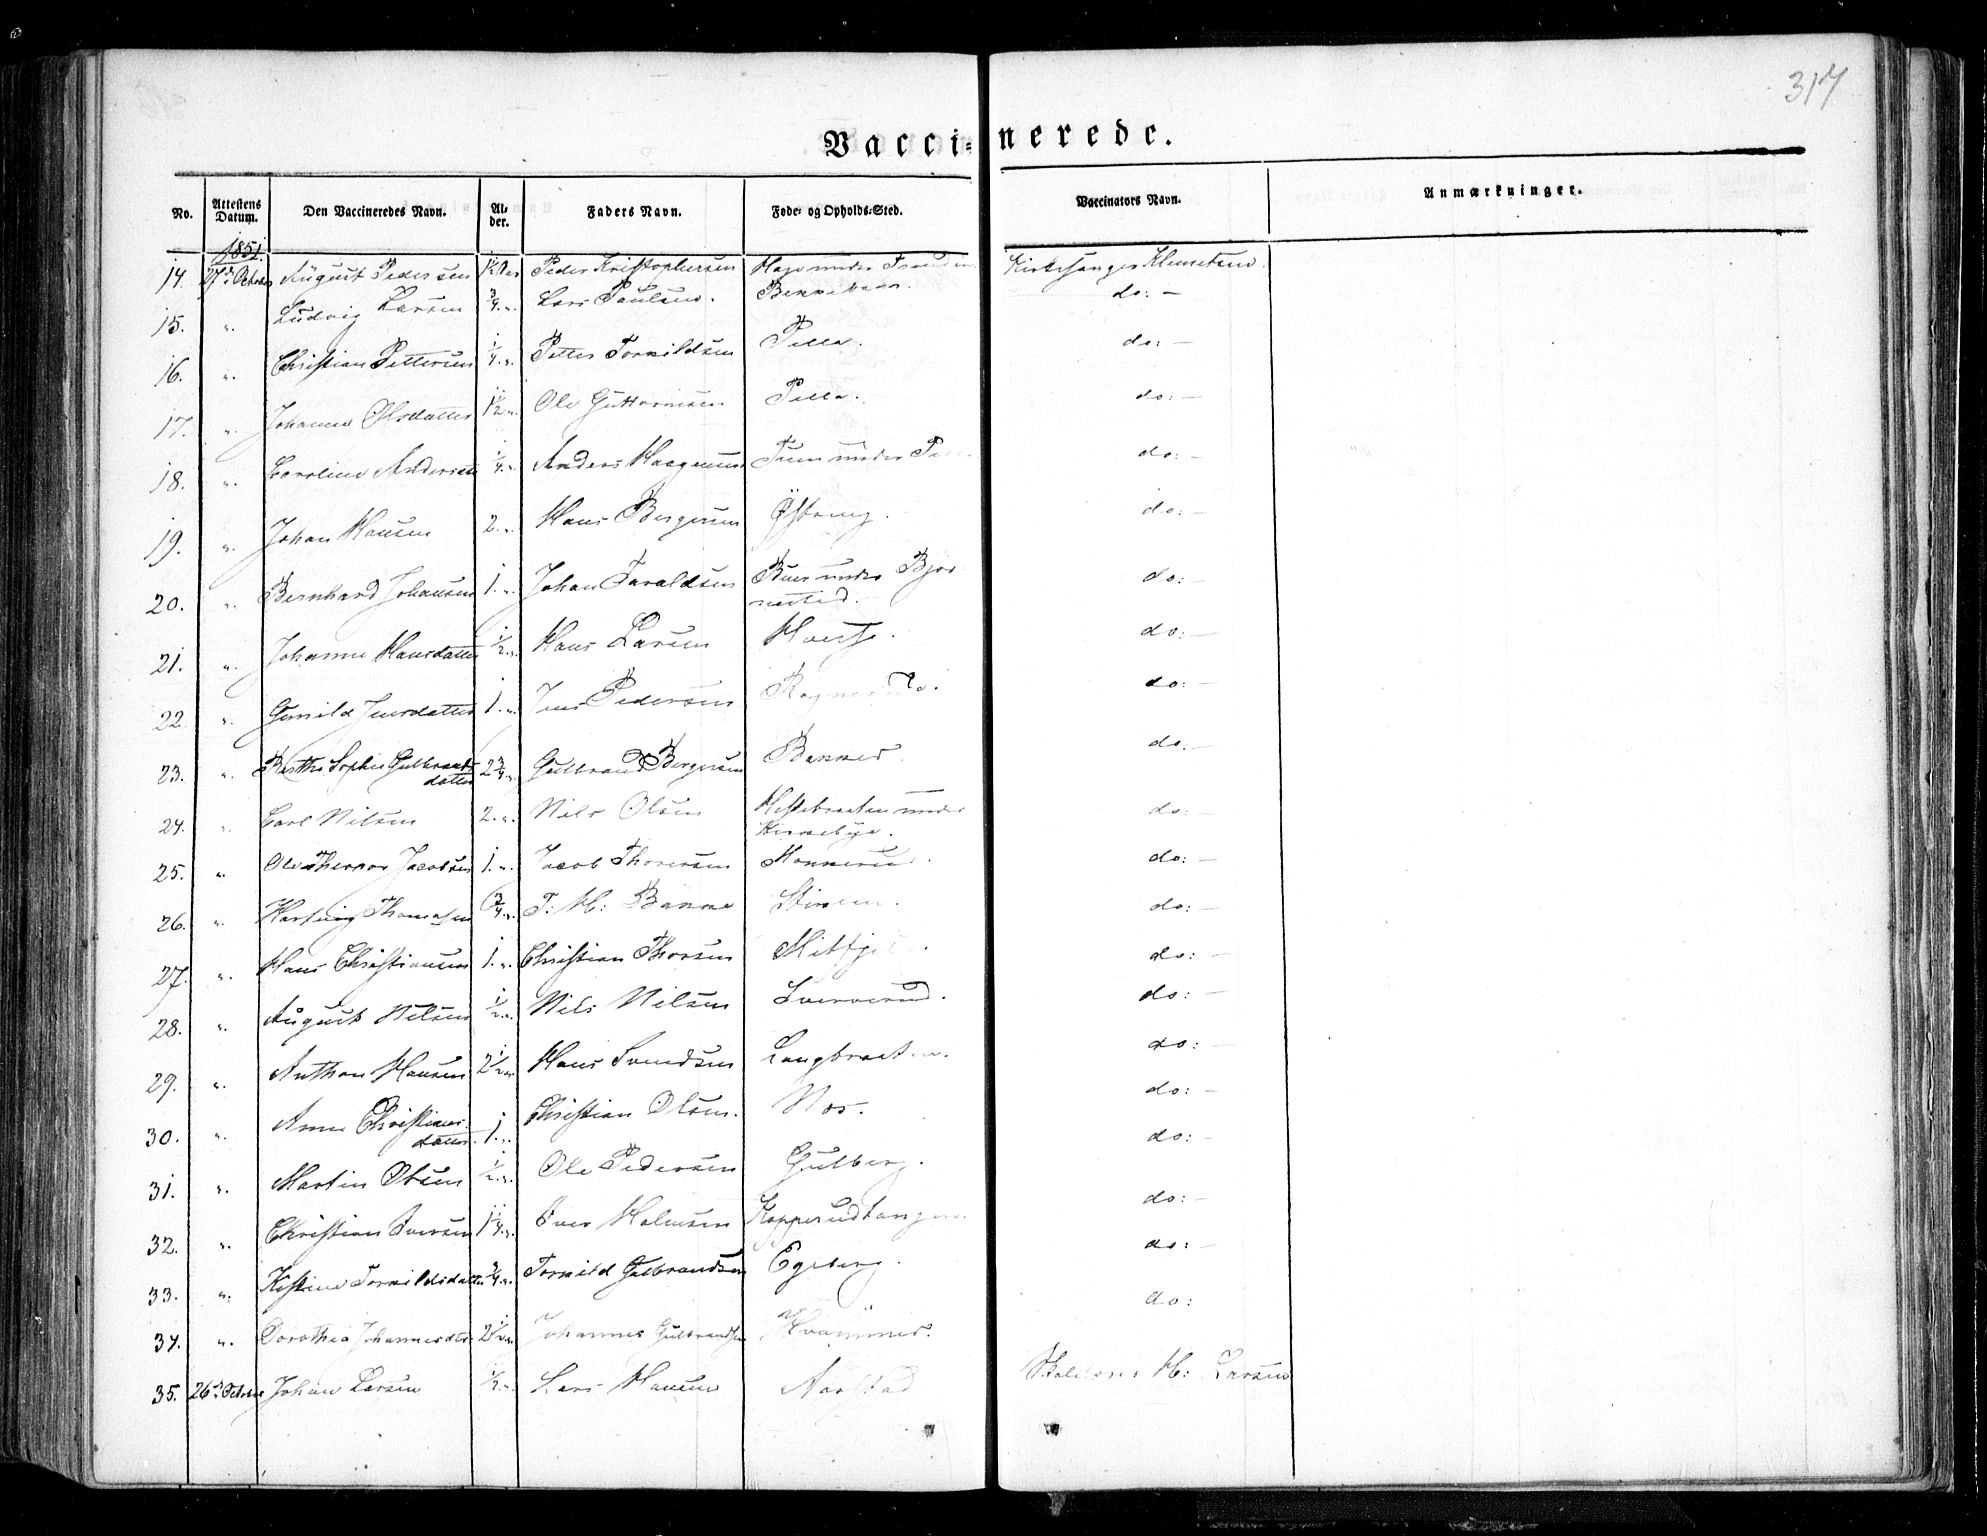 317
Vaccinerede.
No. Attestens Datum. Den Vaccineredes Navn. Alder. Faders Navn. Føde- og Opholds-Sted. Vaccinators Navn. Anmærkninger.
1851.
14. August Pedersen 1½ Peder Kristophersen under Kirkesanger Klemetsen
15. " Ludvig Larsen ¾ " Lars Paulsen. do: -
16. " Christian Pettersen ¼ " Petter Torkildsen Pella. do: -
17. " Johanne Olsdatter 1½ " Ole Guttormsen Pella. do: -
18. " Caroline Andersdt ¼ " Anders Haagensen under do: -
19. " Johan Hansen 2. " Hans Bergersen Østeng. do: -
20. " Bernhard Johansen 1. " Johan Taraldsen under Bjør- do: -
nestad.
21. " Johanne Hansdatter ½ " Hans Larsen do: -
22. " Gunild Jensdatter 1. " Jens Pedersen do: -
23. " Berthe Sophie Gulbrands- 2¾ " Gulbrand Bergersen Bakker. do: -
datter
24. " Carl Nilsen 2. " Nils Olsen Hestebraaten under do: -
Kirkebye.
25. " Ole Jacobsen 1. " Jacob Thoresen do: -
26. " Hartvig Thomasen ¾ " T: M: Bakke do: -
27. " Hans Christiansen 1. " Christian Thorsen do: -
28. " August Nilsen ½ " Nils Nilsen Sververud. do: -
29. " Anthon Hansen 2½ " Hans Svendsen Langbraaten. do: -
30. " Anne Christians- 1. " Christian Olsen. Nos. do: -
datter
31. " Martin Olsen ½ " Ole Pedersen Gulberg. do: -
32. " Christian Iversen 1¼ " Iver Halvorsen Kopperudtangen. do: -
33. " Kistine Torkildsdatter ¾ " Torkild Gulbrandsen Egeberg. do: -
34. " Dorothea Johannesdtr 2½ " Johannes Gulbrandsen do:
35. 26de October Johan Larsen ½ " Lars Hansen Aarstad M: Larsen